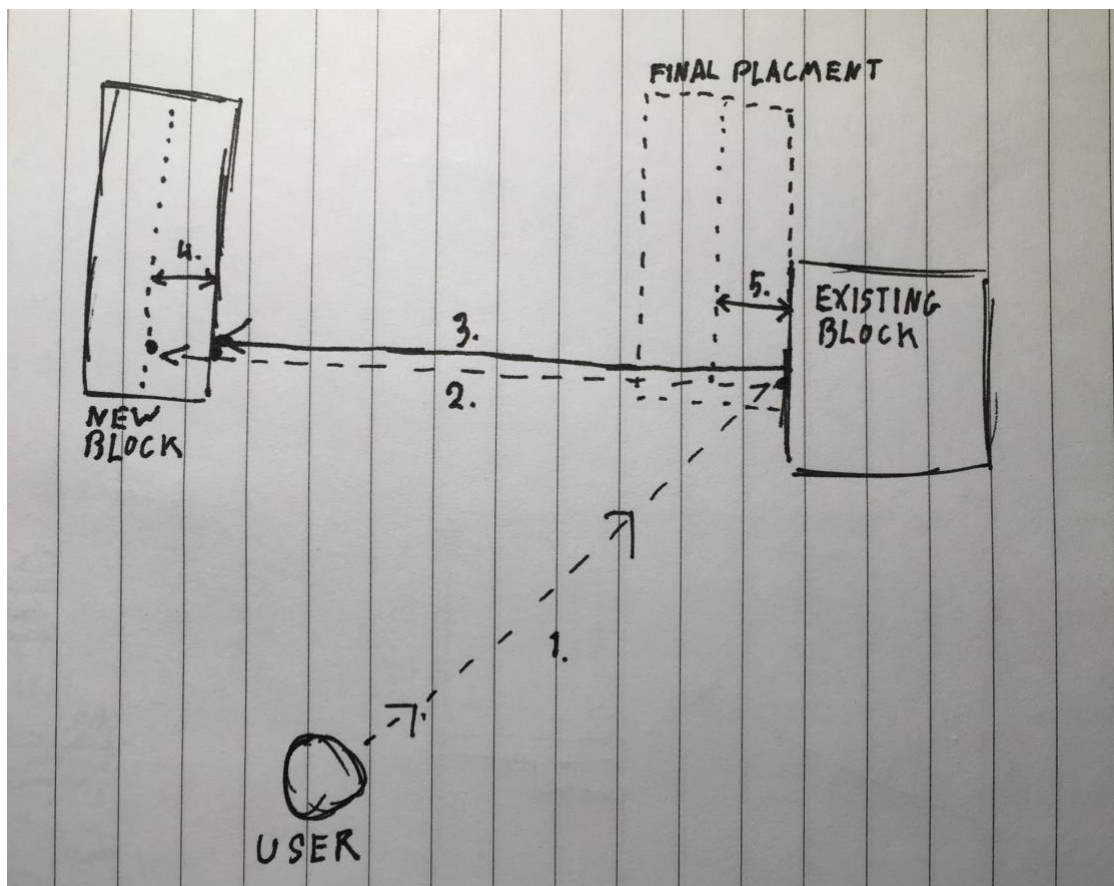 FINAL PLACMENT
4.
5.
EXISTING
BLOCK
3.
2.
NEW
BLOCK
1.
USER